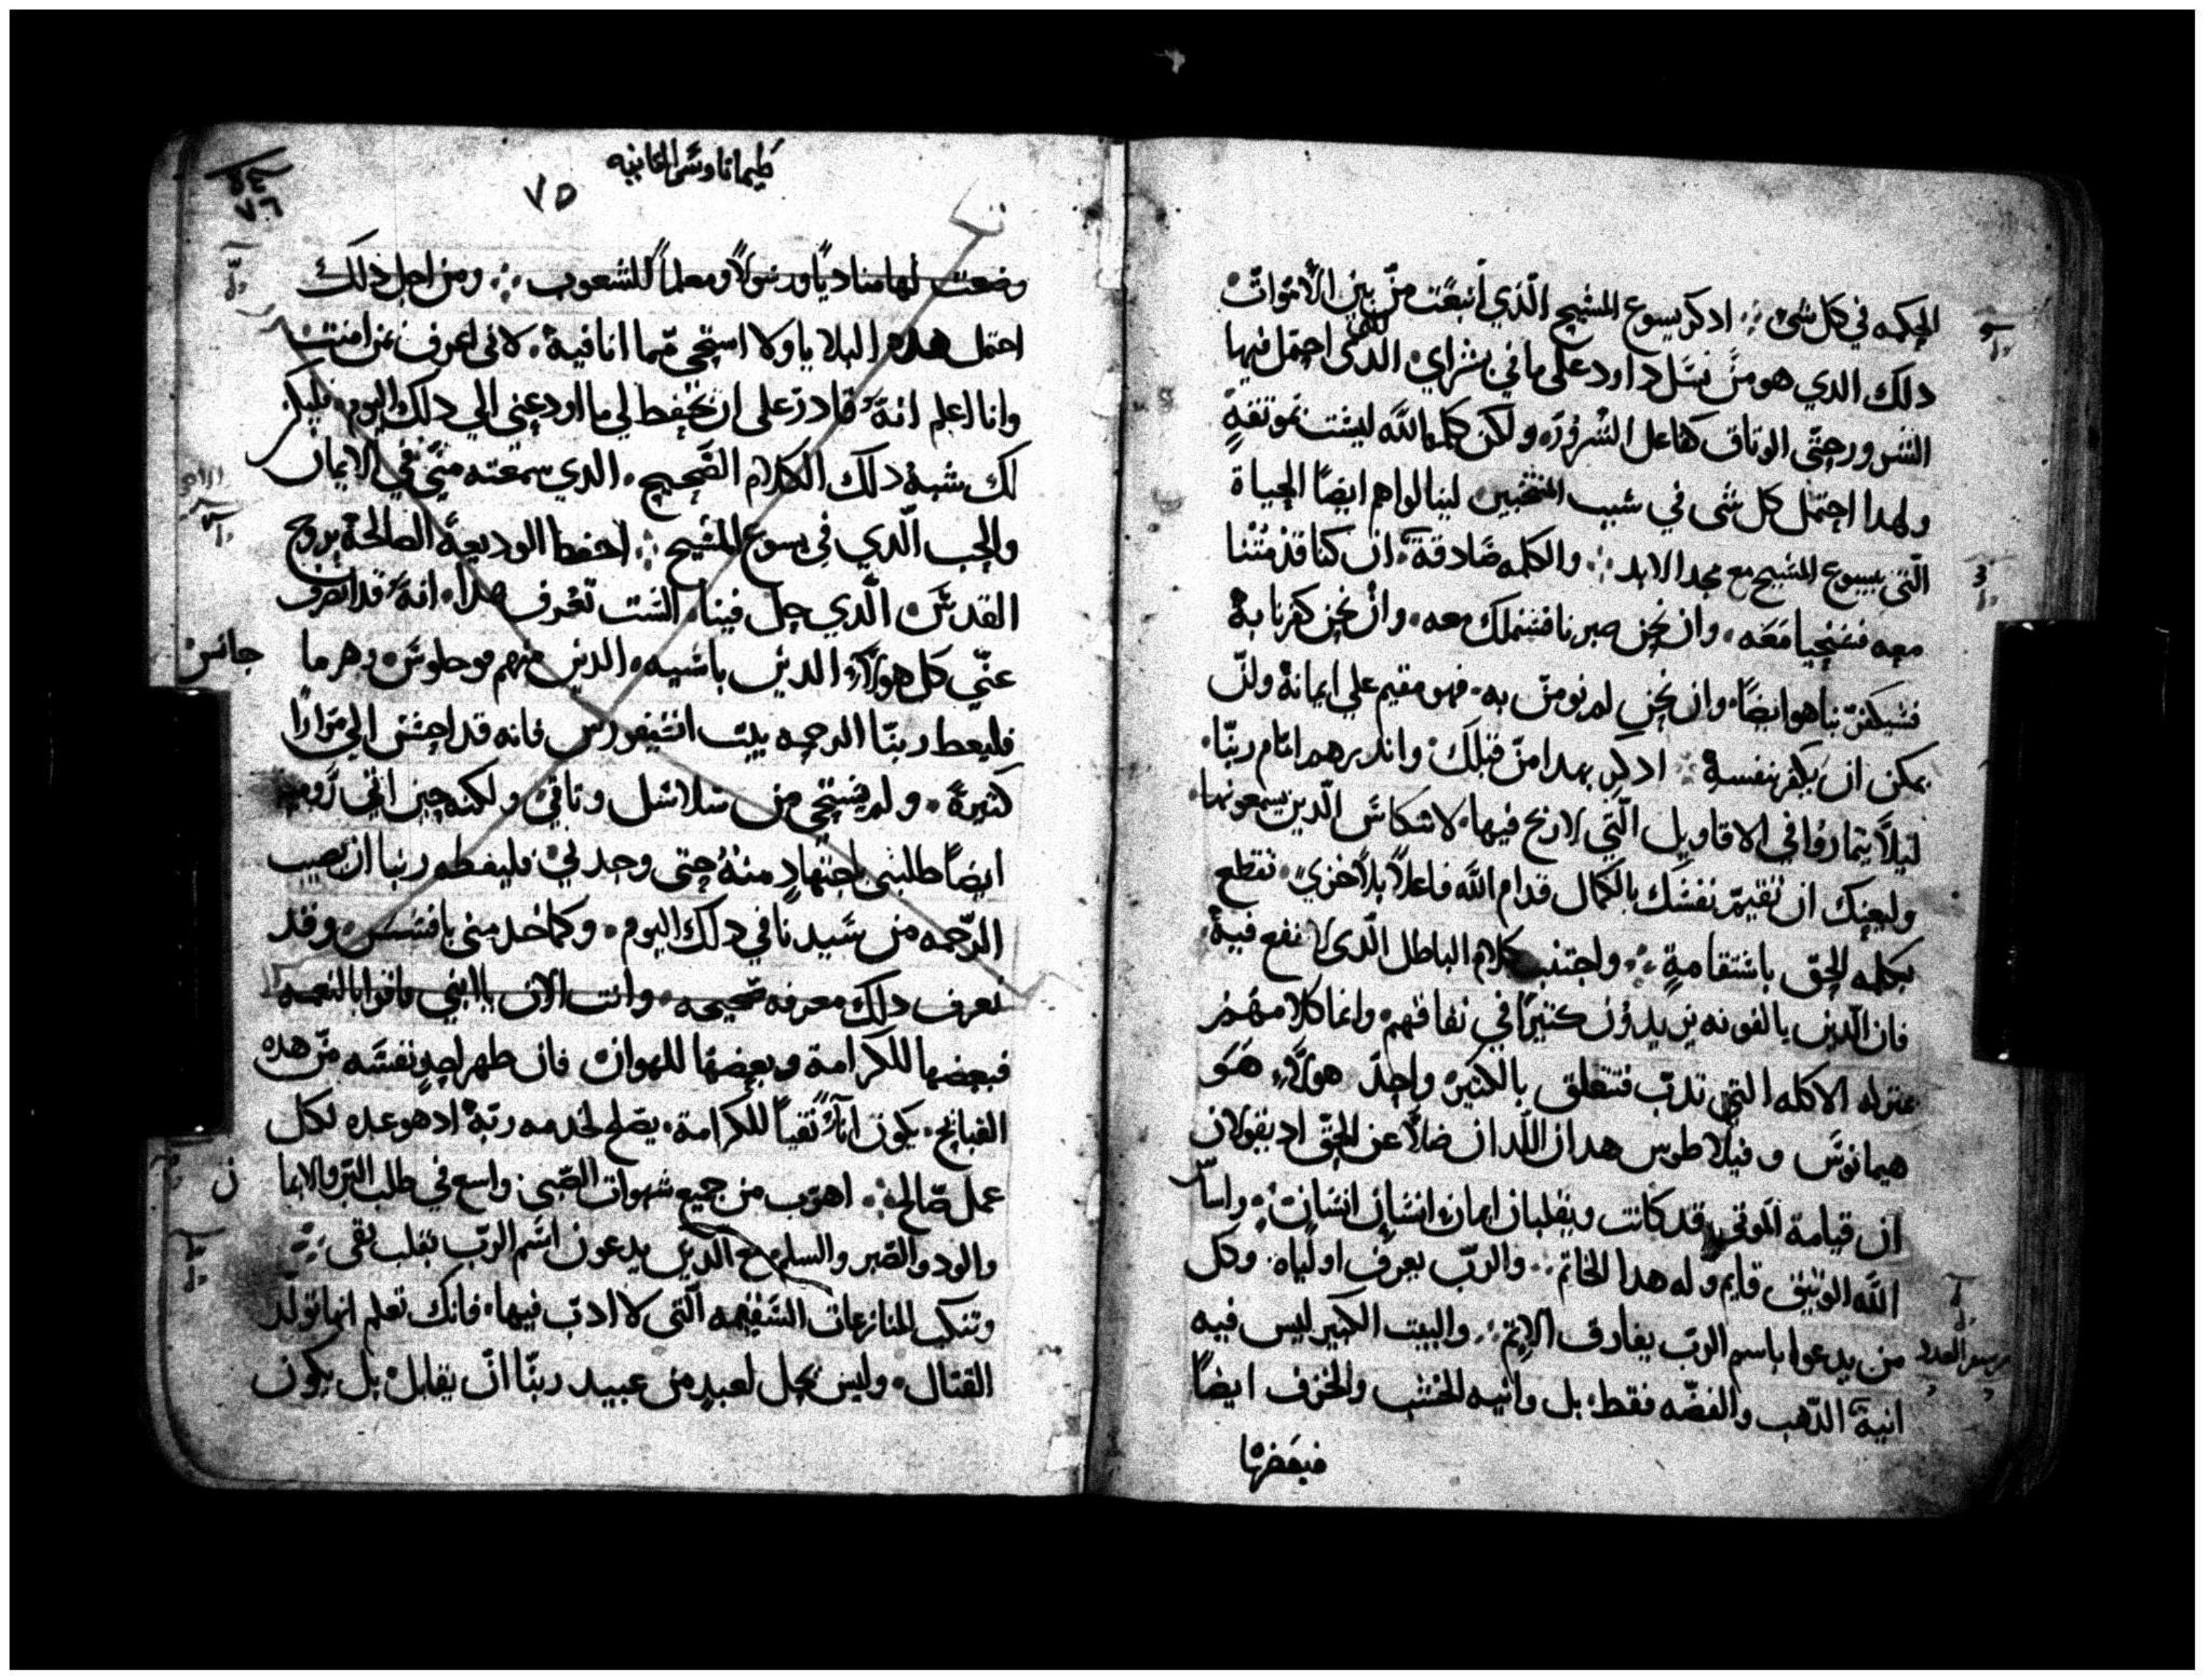 الحكمه في كل شي ܀ ادكر يسوع المسيح الّذي انبعت منّ بين الاموات
دلك الدي هو منّ نسل داود على ما في بشراي الدي احتمل فيها
الشرور حتّى الوتاق كفاعل الشرور ولكن كلمة الله ليست بموتقةٍ
ولهدا احتمل كل شي في سبب المنتخبين لينالوا هم ايضًا الحياة
الّتي بيسوع المسيح مع مجد الابد ܀ والكلمه صادقة ان كنا قد متنا
معه فسنحيا معه وان نحن صبرنا فسنملك معه وان نحن كفرنا به
فسيكفر بنا هو ايضًا وان نحن لم نومن به فهو مقيم على ايمانه ولن
يمكن ان يكفر بنفسه ܀ ادكر بهدا من قبلك وانديرهم امام ربّنا
ليلاً يتماروا في الاقاويل الّتي لا ربح فيها لاسكاس الّدين يسمعونها
وليعنك ان تقيم نفسك بالكمال قدام الله فاعلاً بلا خزي تقطع
بكلمه الحق باستقامةٍ ܀ واجتنب كلام الباطل الّدي لا نفع فيه
فان الّدين يالفونه يزيدون كتيرًا في نفاقهم وانما كلامهم
بمنزله الاكله التي تدبّ فتتعلق بالكتيره واحد هولاء هو
هيمانوس وفيلاطوس هدان اللّدان ضلا عن الحق اد يقولان
ان قيامة الموتى قد كانت ويقلبان ايمان انسان انسان ܀ واساس
الله الوتيق قايم وله هدا الخاتم ܀ والربّ يعرف اولياه وكل
من يدعوا باسم الربّ يفارق الاتم ܀ والبيت الكبير ليس فيه
انية الدّهب والفضّه فقط بل وانيه الخشب والخزف ايضًا
فبعضها
طيماتاوس التانيه
٧٥
وضعت لها مناديًا ورسولاً ومعلماً للشعوب ܀ ومن اجل دلك
احتمل هده البلايا ولا استحي ممّا انا فيه لاني اعرف بمن امنت
وانا اعلم انه قادر على ان يحفظ لي ما اودعني الي دلك اليوم فليكن
لك شبه دلك الكلام الصّحيح الدي سمعته منّي في الايمان
والحب الّدي في يسوع المسيح ܀ احفظ الوديعة الصالحة بروح
القدس الّدي حل فينا الست تعرف هدا انه قد انصرف
عنّي كل هولاء الدين باسيه الدين منهم فوجلوس وهرما جانس
فليعط ربنّا الرحمه بيت انسيفورس فانه قد احسن الي مرارًا
كتيرة ولم يستحي من سلاسل وتاقي ولكنه حين اتي رومية
ايضًا طلبني باجتهادٍ منه حتى وجدني فليعطه ربنا ان يصيب
الرّحمه من سيدنا في دلك اليوم وكما خدمني بافسس وقد
تعرف دلك معرفه صحيحه وانت الان ياابني فاقوا بالنعمه
فبعضها للكرامة وبعضها للهوان فان طهر احدٍ نفسه منّ هده
القبايح يكون اناءً نقياً للكرامة يصلح لخدمه ربّه اد هو عده لكل
عمل صّالح ܀ اهرب من جميع شهوات الصّبي واسع في طلب البّر والايما ن
والود والصّبر والسلم مع الدين يدعون اسم الربّ بقلب نقى ܀
وتنكب المنازعات السّفيهه الّتي لا ادب فيها فانك تعلم انها تولد
القتال وليس يحل لعبدٍ من عبيد ربنّا انّ يقاتل بل يكون